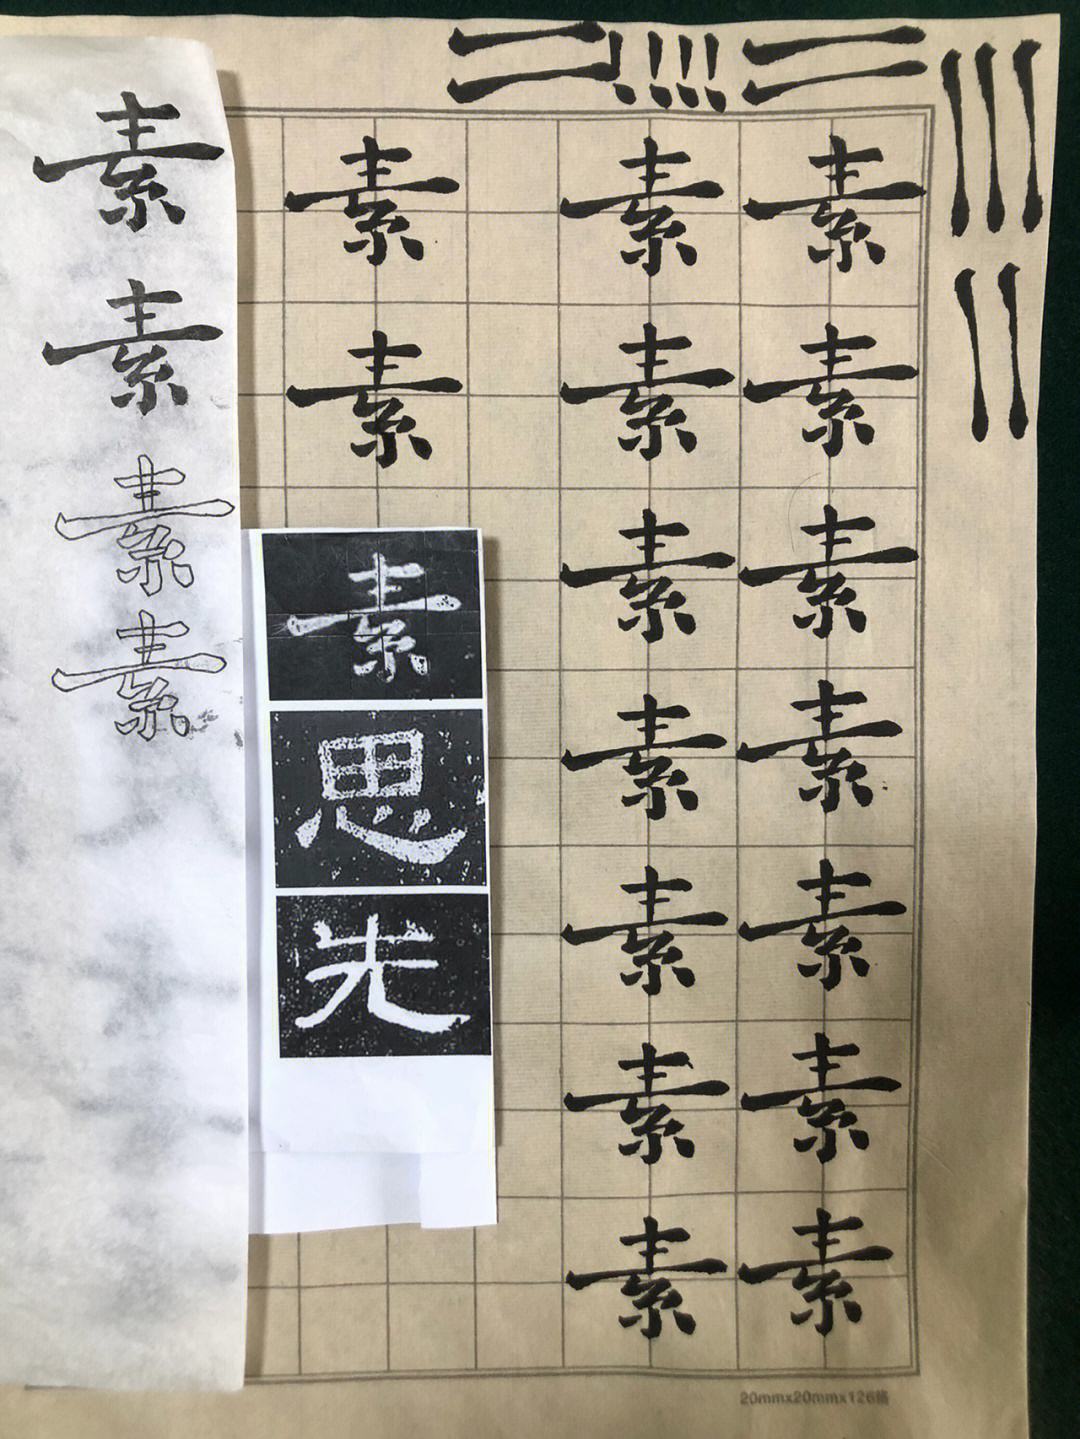 素素素素素素素
素素素素素素素
素素
素思先
素素素素
20mmx20mmx126格